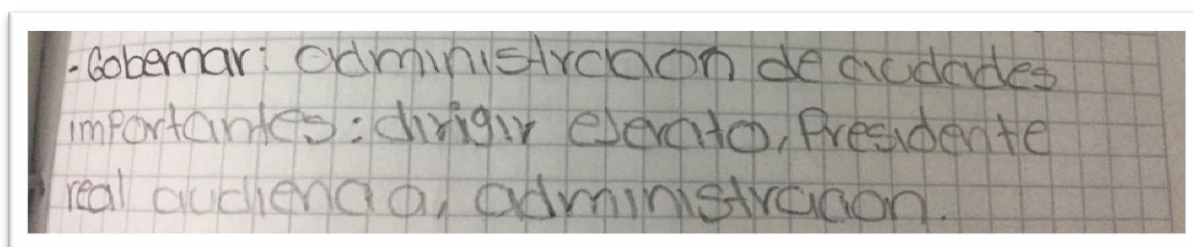 - Gobernar: administracion de ciudades
importantes: dirigir ejercito, Presidente
real audiencia, administracion.